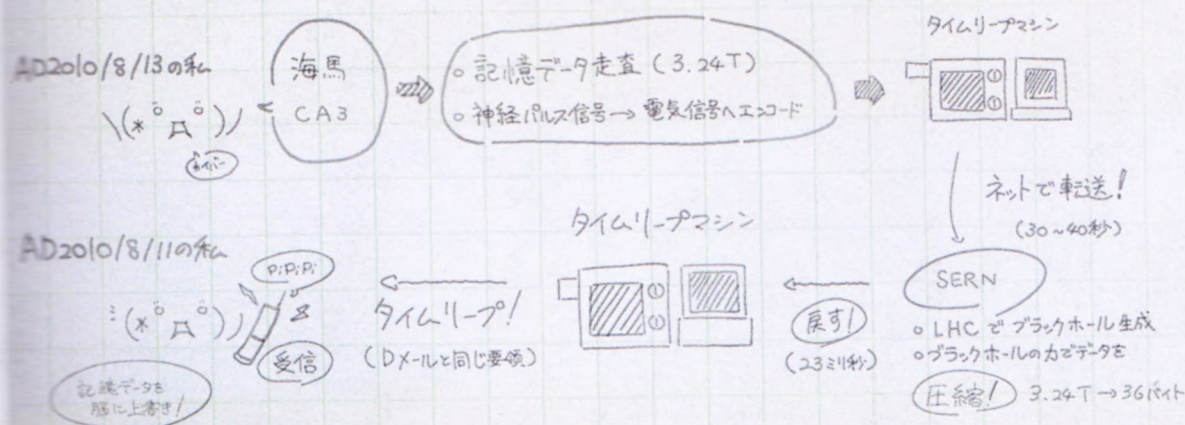 AD2010/8/13の私
海馬
CA3
○ 記憶データ走査(3.24T)
○ 神経パルス信号→電気信号へエンコード
タイムリープマシン
ネットで転送!
(30~40秒)
SERN
○ LHCでブラックホール生成
○ ブラックホールの力でデータを
圧縮! 3.24T→36バイト
戻す!
(23ミリ秒)
タイムリープマシン
タイムリープ!
(Dメールと同じ要領)
AD2010/8/11の私
PiPiPi
受信
記憶データを
脳に上書き!